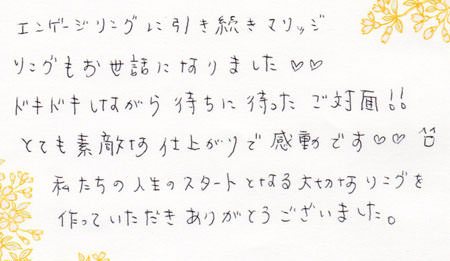 エンゲージリングに引き続きマリッジ
リングもお世話になりました♡♡
ドキドキしながら待ちに待ったご対面!!
とても素敵な仕上がりで感動です♡♡
私たちの人生のスタートとなる大切なリングを
作っていただきありがとうございました。